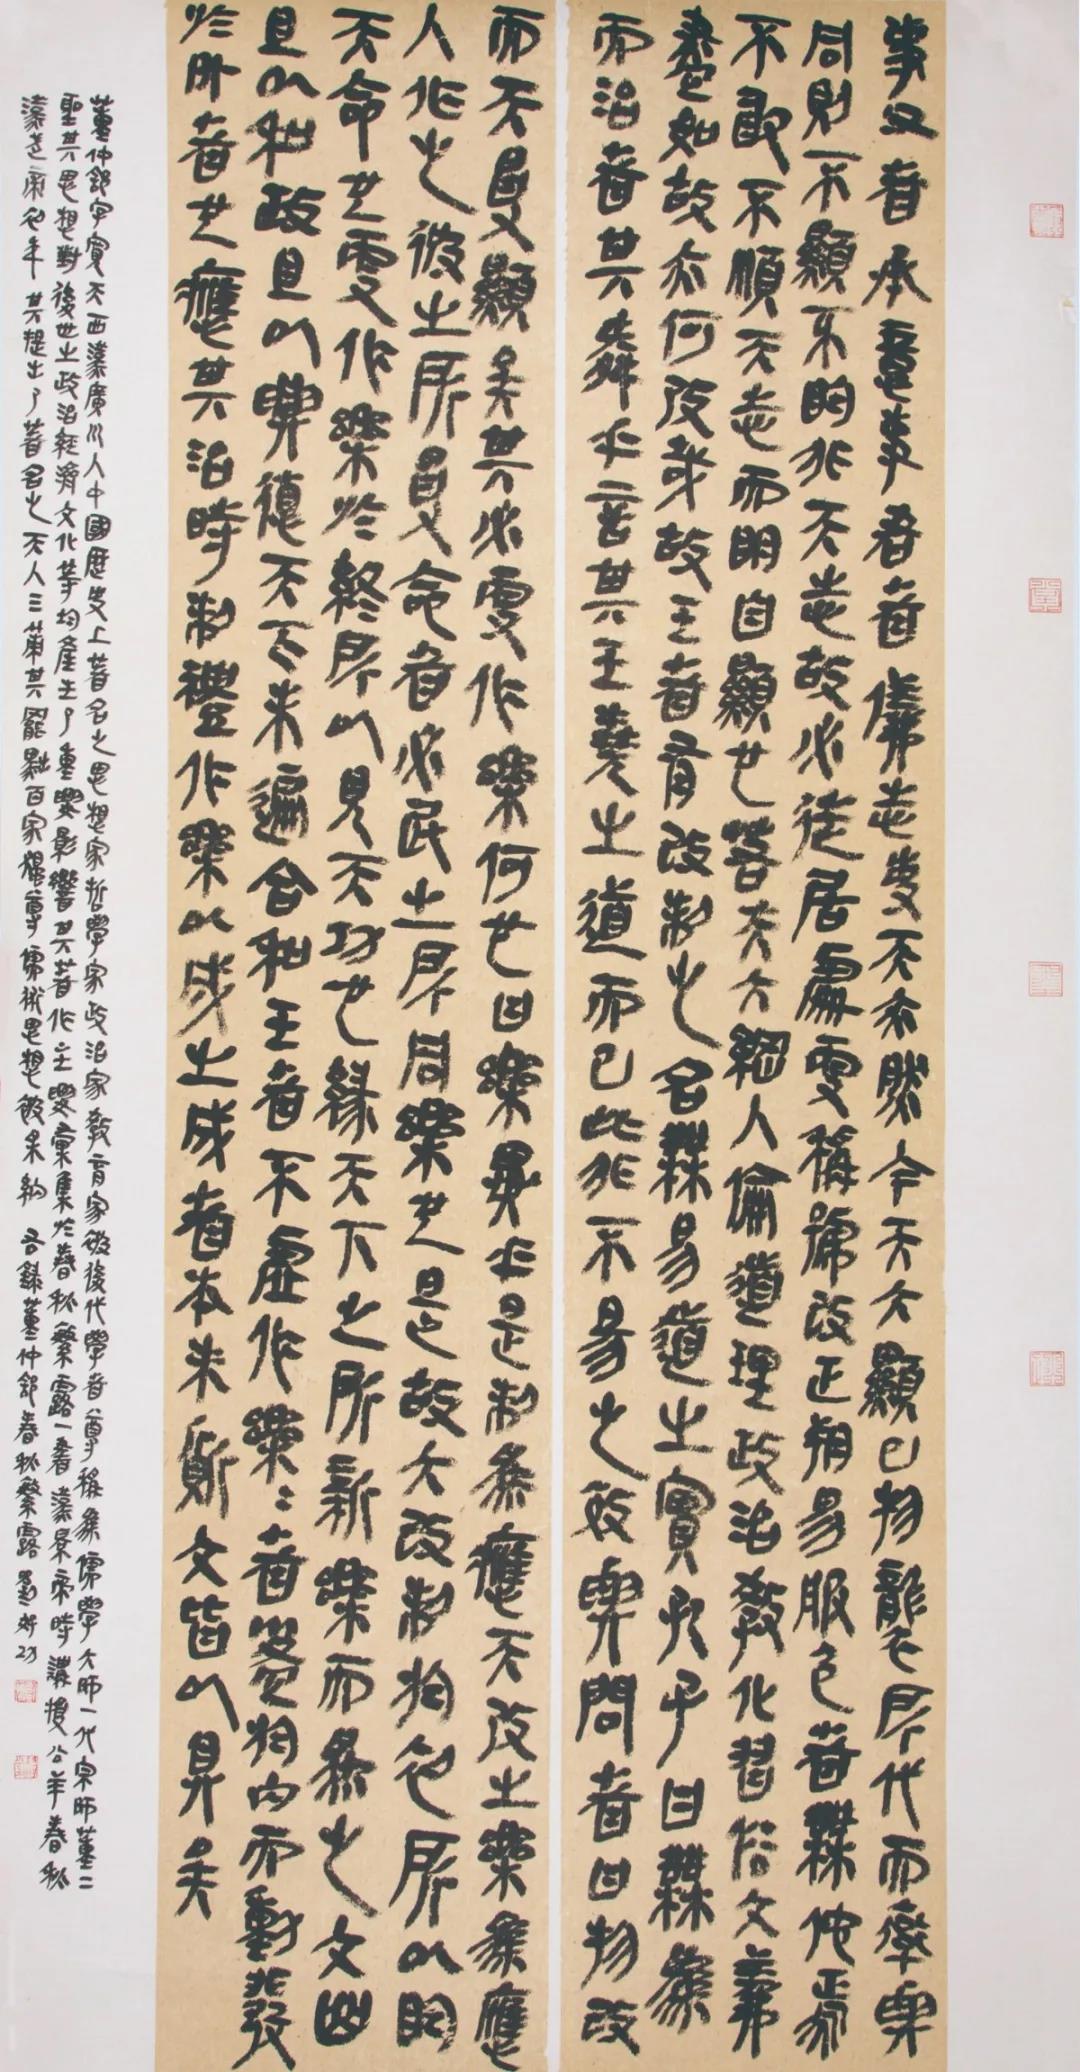 事父者承意事君者儀志事天亦然今天大顯已物襲所代而率與
同則不顯不明非天志故必徙居處更稱號改正朔易服色者無他焉
不敢不順天志而明自顯也若夫大綱人倫道理政治教化習俗文義
盡如故亦何改哉故王者有改制之名無易道之實孔子曰無為
而治者其舜乎言其王堯之道而已此非不易之效與問者曰物改
而天受顯矣其必更作樂何也曰樂異乎是制為應天改之樂為應
人作之彼之所受命者必民之所同樂也是故大改制於初所以明
天命也更作樂於終所以見天功也緣天下之所新樂而為之文曲
且以和政且以興德天下未遍合和王者不虛作樂〻者盈於內而動發
於外者也應其治時制禮作樂以成之成者本末質文皆以具矣
董仲舒字寬夫西漢廣川人中國歷史上著名之思想家哲學家政治家教育家被後代學者尊稱為儒學大師一代宗師董二
聖其思想對後世之政治經濟文化等均產生了重要影響其著作主要彙集於春秋繁露一書漢景帝時講授公羊春秋
漢武帝初年其提出了著名之天人三策其罷黜百家獨尊儒術思想被采納 右錄董仲舒春秋繁露